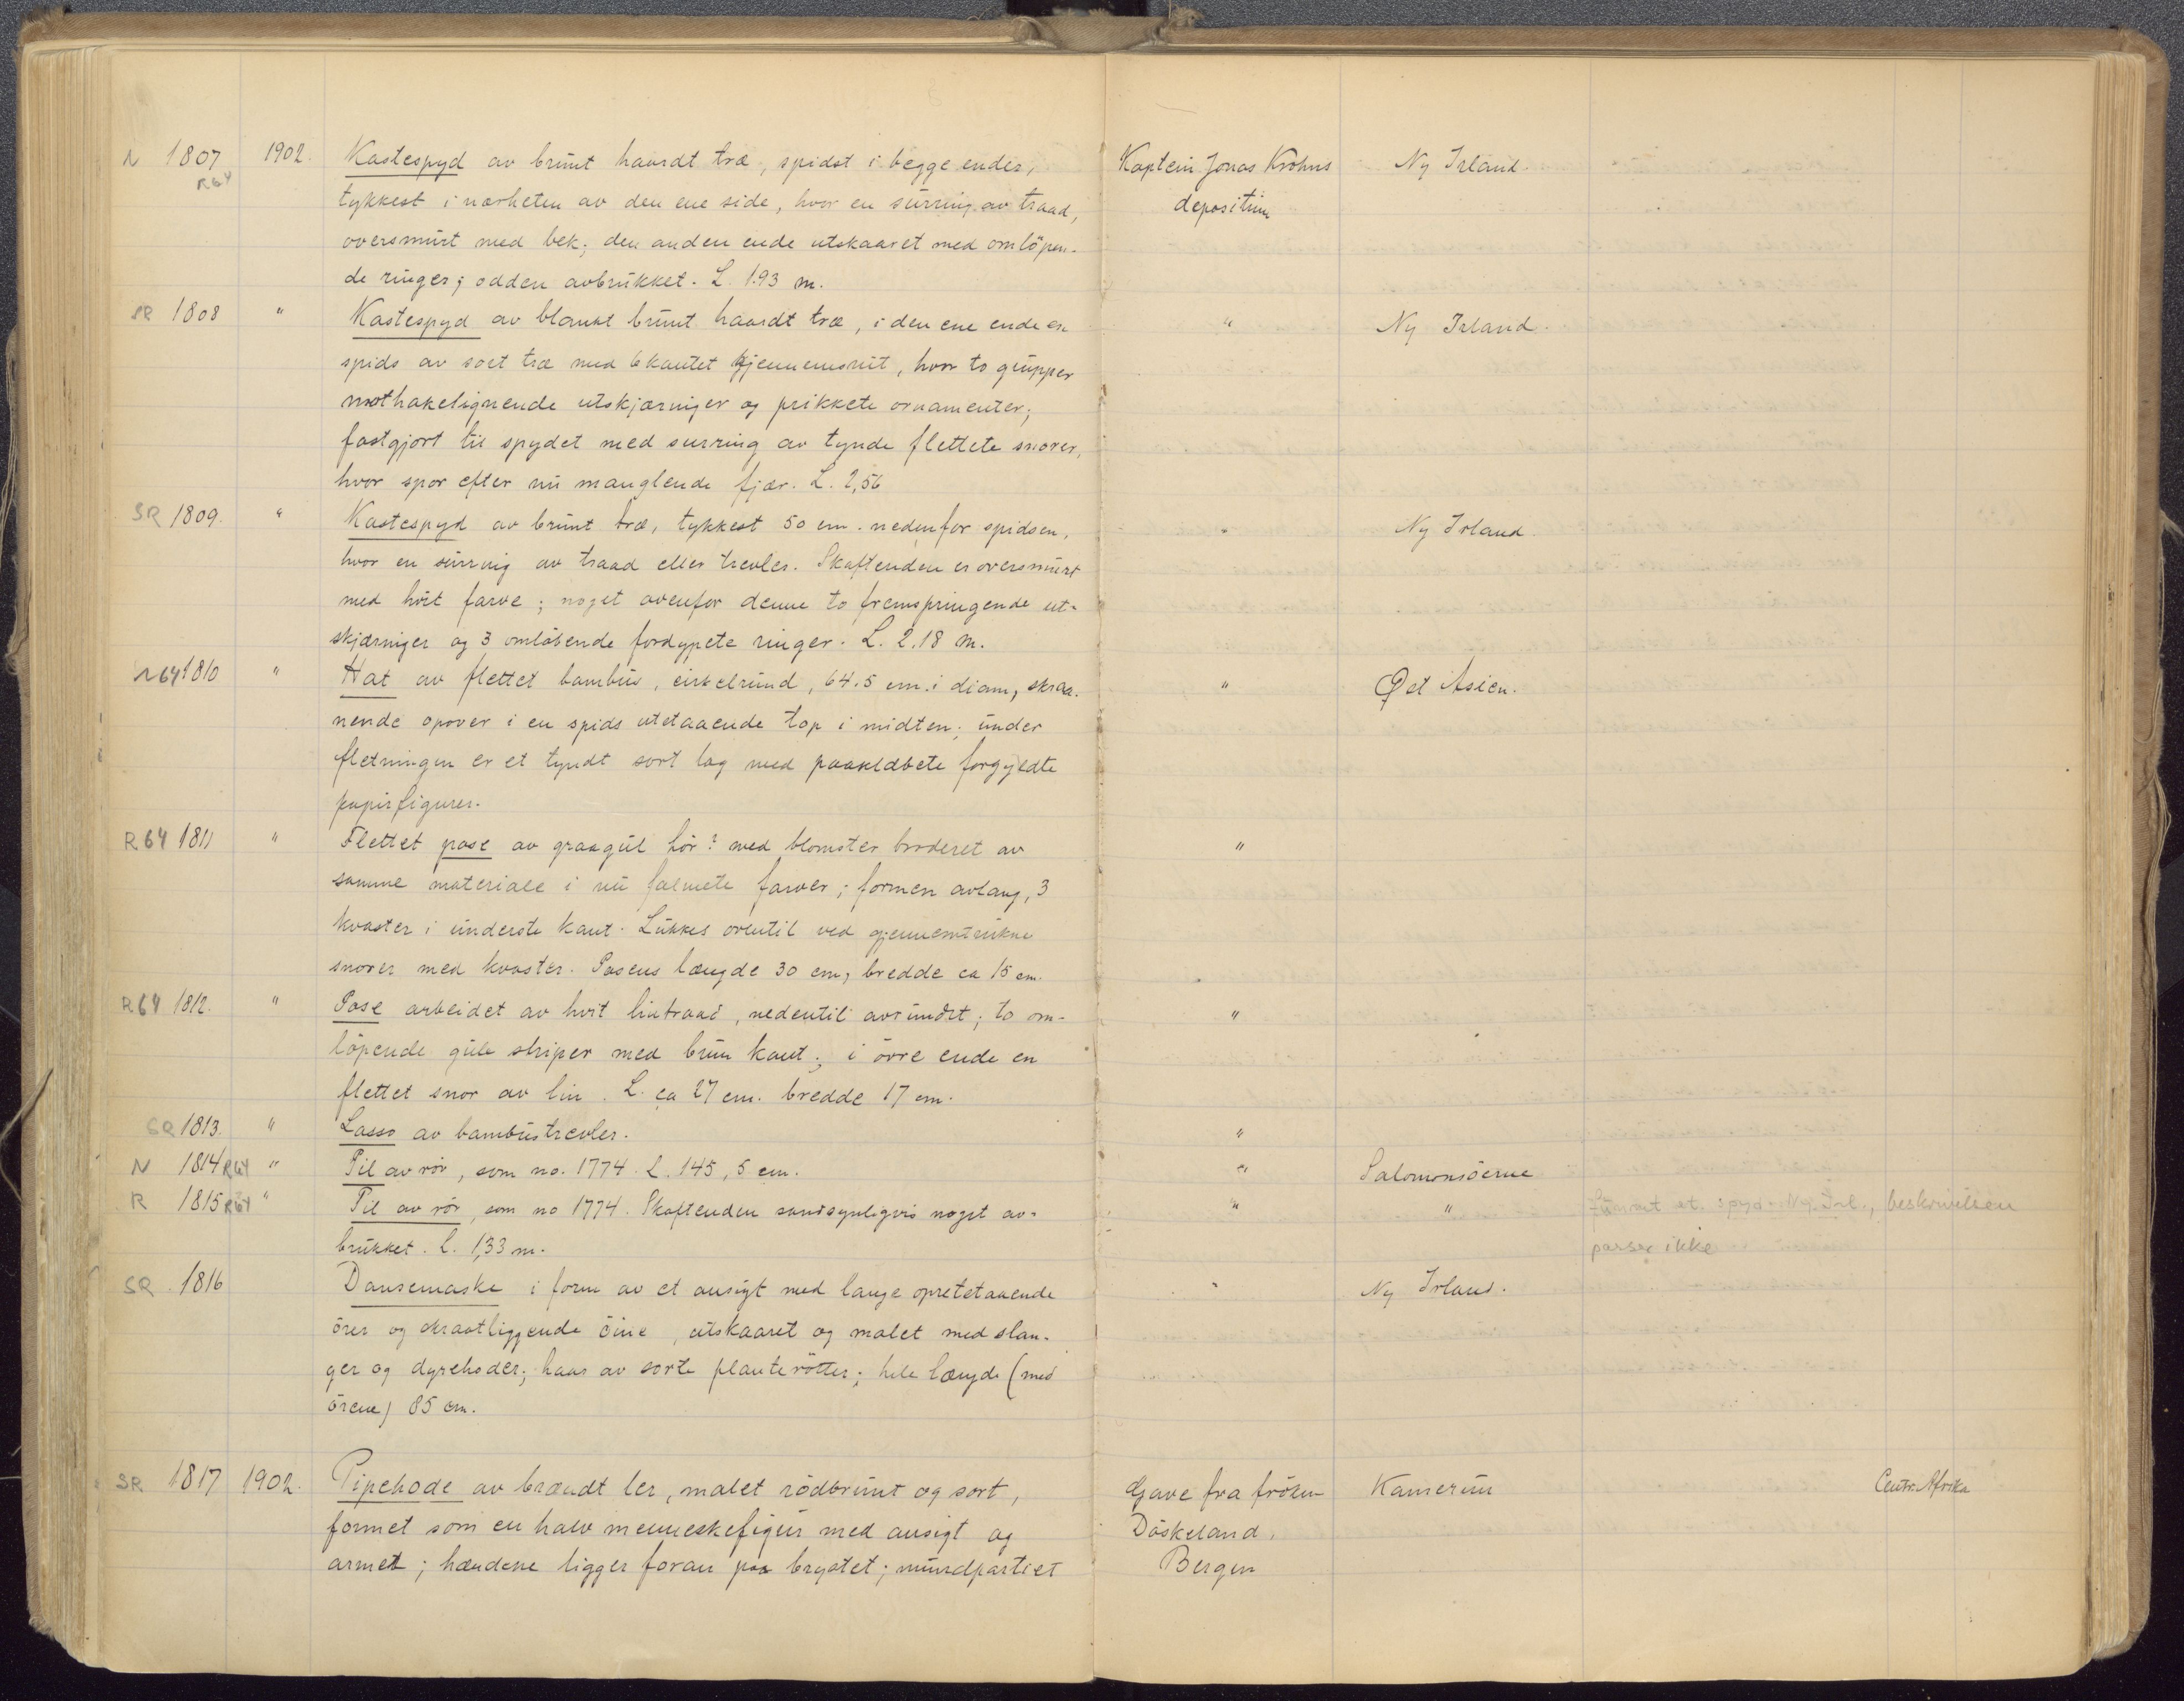 N 1807 1902. Kastespyd av brunt haardt træ, spidst i begge ender, Kaptein Jonas Krohns Ny Irland.
R64 tykkest i nærheten av den ene side, hvor en surring av traad, depositum
oversmurt med bek; den anden ende utskaaret med omlöpen-
de ringer; odden avbrukket. L. 1.93 m.
SR 1808 " Kastespyd av blankt brunt haardt træ, i den ene ende en " Ny Irland.
spids av sort træ med 6kantet gjennemsnit, hvor to grupper
mothakelignende utskjærninger og prikkete ornamenter;
fastgjort til spydet med surring av tynde flettete snorer,
hvor spor efter nu manglende fjær. L. 2,56
SR 1809. " Kastespyd av brunt træ, tykkest 50 cm. nedenfor spidsen, " Ny Irland
hvor en surring av traad eller trevler. Skaftenden er oversmurt
med hvit farve; noget ovenfor denne to fremspringende ut-
skjærninger og 3 omløbende fordypete ringer. L. 2.18 m.
R64 1810 " Hat av flettet bambus, cirkelrund, 64.5 cm. i diam, skraa- " Øst Asien.
nende opover i en spids utstaaende top i midten; under
fletningen er et tyndt sort lag med paaklæbete forgyldte
papirfigurer.
R64 1811 " Flettet pose av graagul hör? med blomster broderet av "
samme materiale i nu falmete farver; formen avlang, 3
kvaster i underste kant. Lukkes oventil ved gjennemtrukne
snorer med kvaster. Posens længde 30 cm, bredde ca 15 cm.
R64 1812. " Pose arbeidet av hvit lintraad, nedentil avrundet; to om- "
löpende gule striper med brun kant; i övre ende en
flettet snor av lin. L. ca 27 cm. bredde 17 cm.
SR 1813. " Lasso av bambustrevler. "
N 1814 R64 " Pil av rör, som no. 1774. L. 145,5 cm. " Salomonsöerne
R 1815 R64 " Pil av rör, som no 1774. Skaftenden sandsynligvis noget av- " " et spyd Ny Irl., beskrivelsen
brukket. L. 1,33 m. passer ikke
SR 1816 Dansemaske i form av et ansigt med lange opretstaaende " Ny Irland.
örer og skraatliggende öine, utskaaret og malet med slan-
ger og dyrehoder; haar av sorte planterötter; hele længde (med
örene) 85 cm.
SR 1817 1902. Pipehode av brændt ler, malet rödbrunt og sort, Gave fra fröken Kamerun Centr. Afrika
formet som en halv menneskefigur med ansigt og Döskeland,
armer; hændene ligger foran paa brystet; mundpartiet Bergen